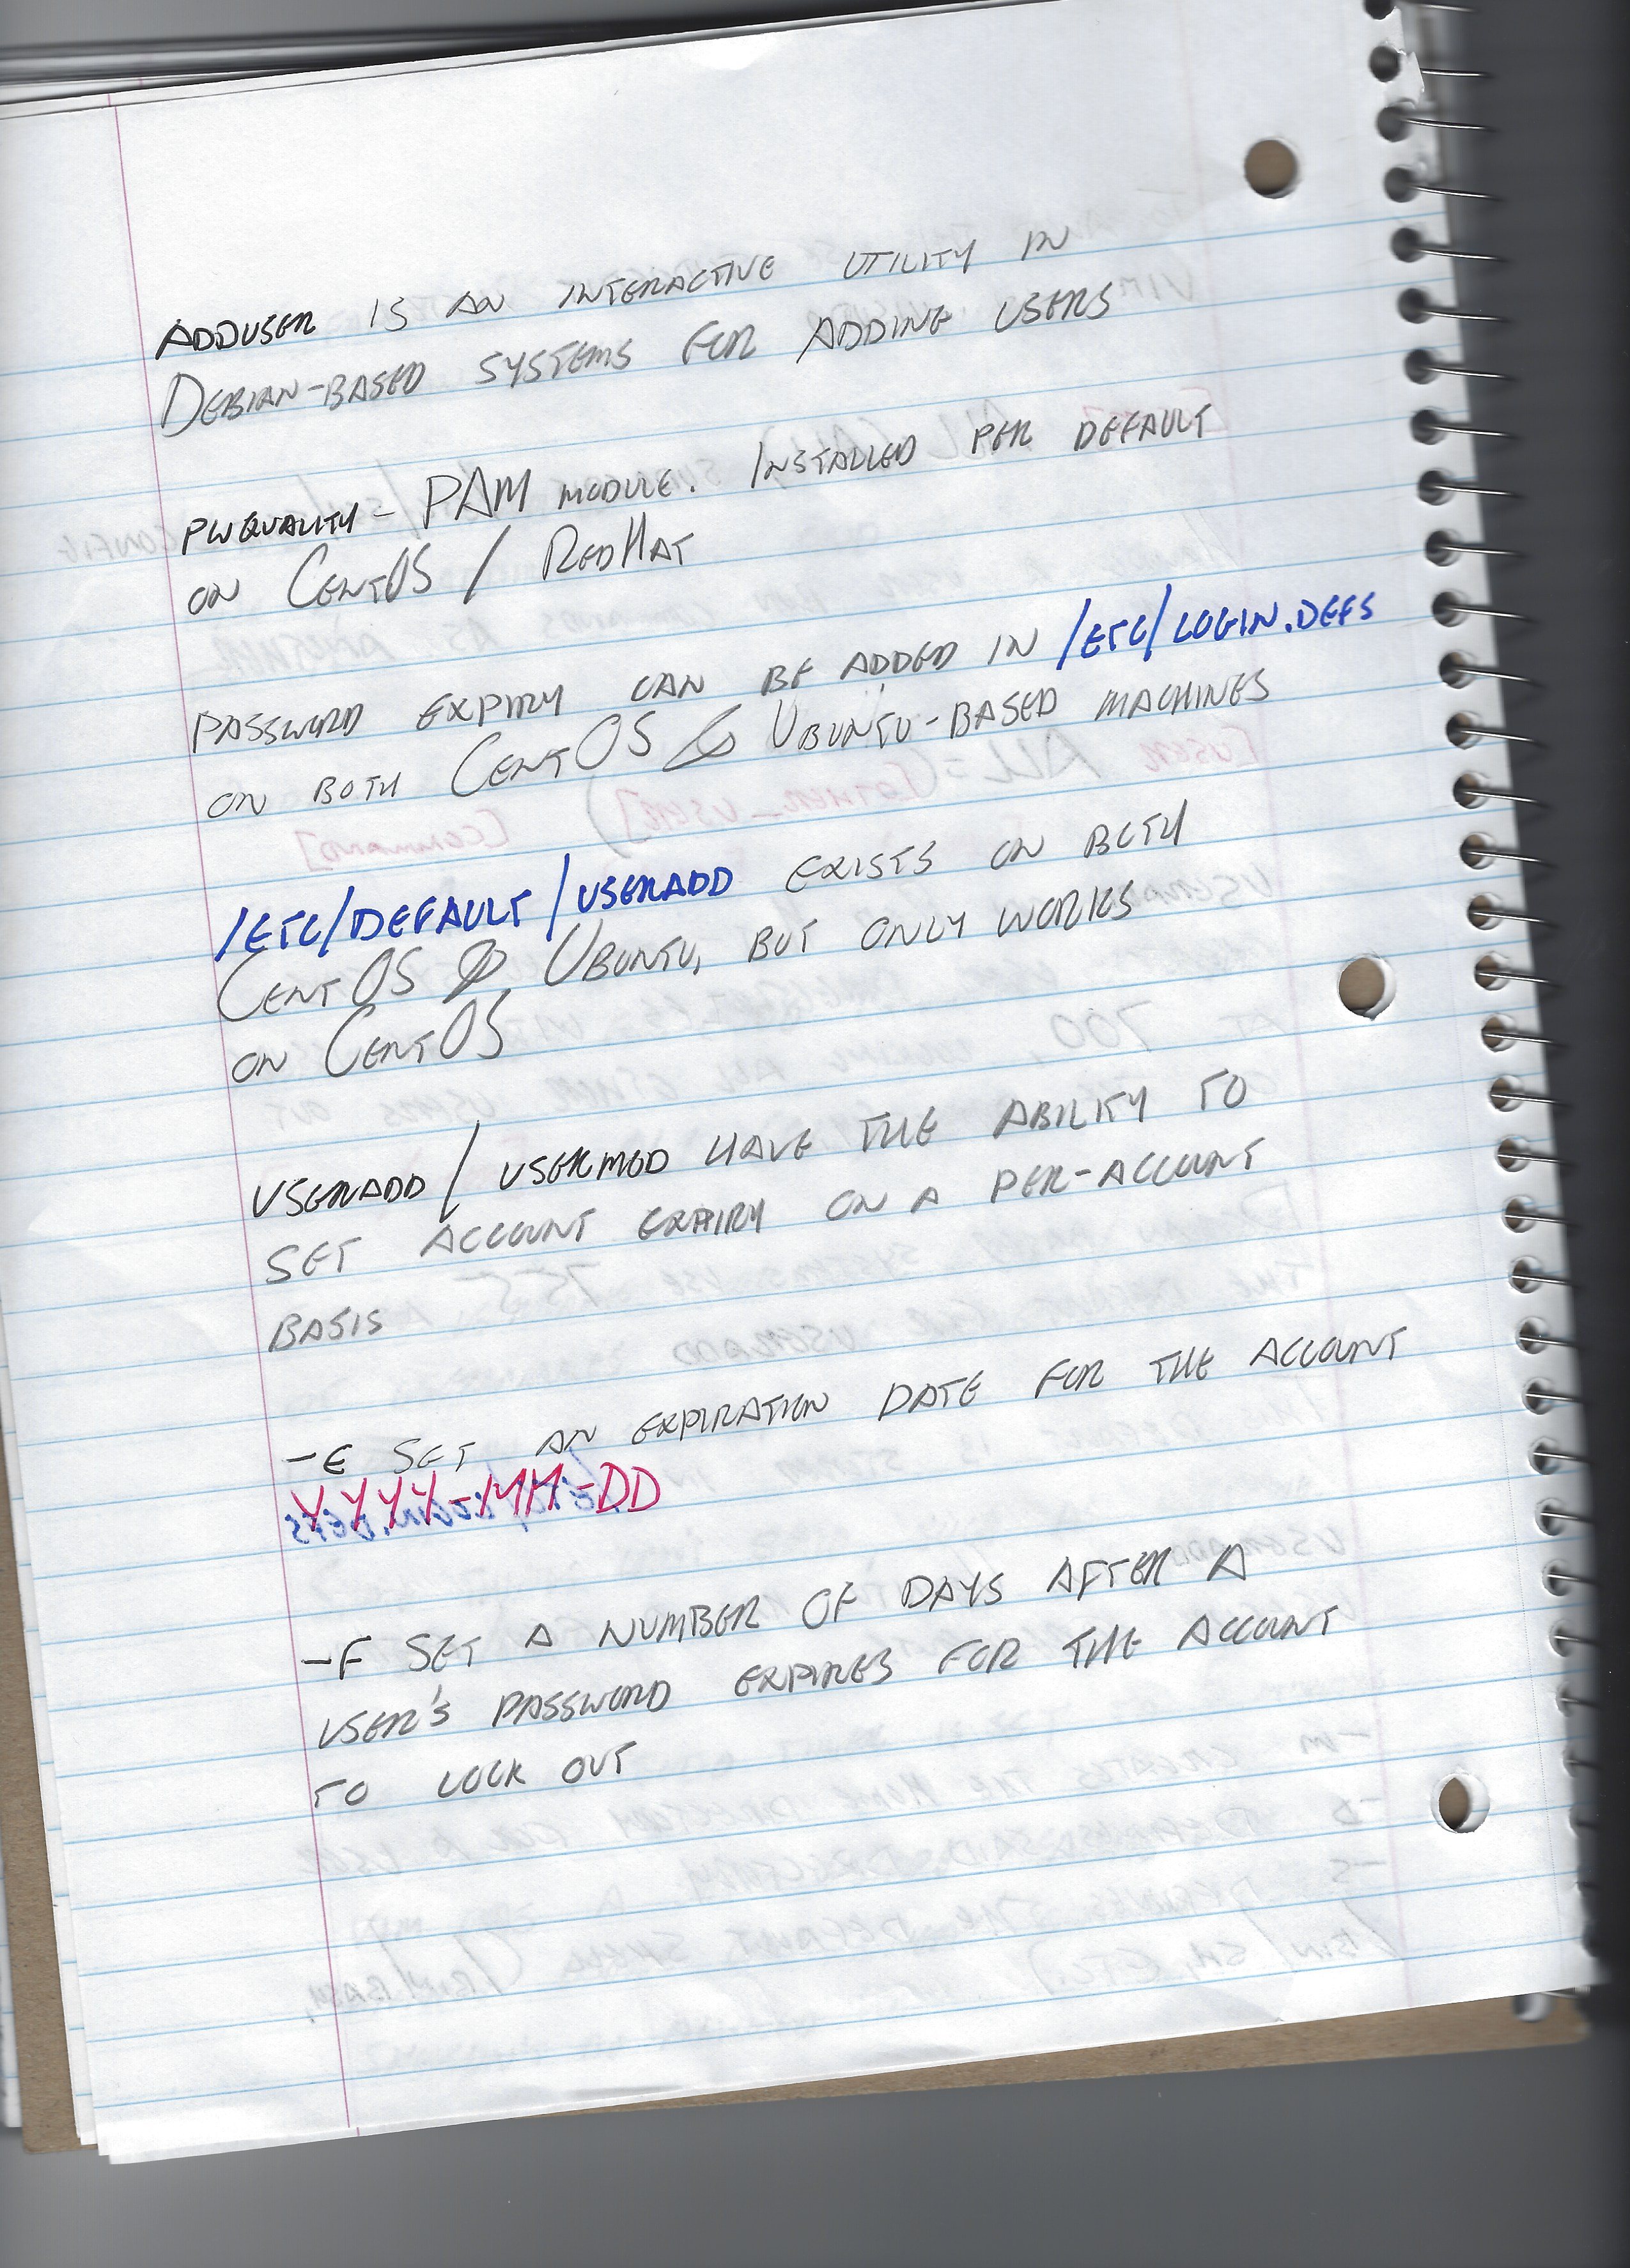 ADDUSER IS AN INTERACTIVE UTILITY IN
DEBIAN-BASED SYSTEMS FOR ADDING USERS
PWQUALITY - PAM MODULE. INSTALLED PER DEFAULT
ON CENTOS / REDHAT
PASSWORD EXPIRY CAN BE ADDED IN /ETC/LOGIN.DEFS
ON BOTH CENTOS & UBUNTU-BASED MACHINES
/ETC/DEFAULT/USERADD EXISTS ON BOTH
CENTOS & UBUNTU, BUT ONLY WORKS
ON CENTOS
USERADD/USERMOD HAVE THE ABILITY TO
SET ACCOUNT EXPIRY ON A PER-ACCOUNT
BASIS
-E SET AN EXPIRATION DATE FOR THE ACCOUNT
YYYY-MM-DD
-F SET A NUMBER OF DAYS AFTER A
USER'S PASSWORD EXPIRES FOR THE ACCOUNT
TO LOCK OUT